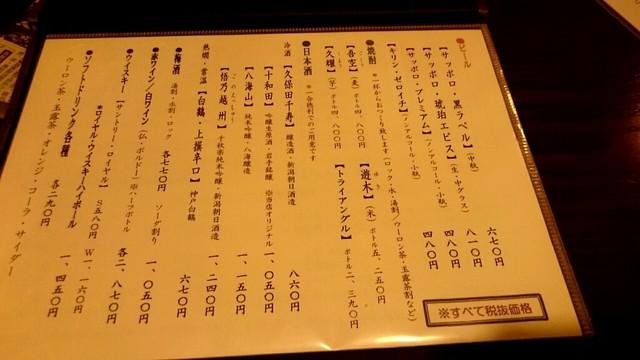 ●ビール
【サッポロ・黒ラベル】(中瓶) 六七〇円
【サッポロ・琥珀ヱビス】(生・中グラス) 八一〇円
【サッポロ・プレミアム】(ノンアルコール・小瓶) 四八〇円
【キリン・ゼロイチ】(ノンアルコール・小瓶) 四八〇円
●焼酎 ※一杯からおつくり致します(ロック・水・湯割/ウーロン茶・玉露茶割など)
【吾空】(麦) ボトル四、八〇〇円
【遊木】(米) ボトル五、二五〇円
【久耀】(芋) ボトル四、八〇〇円
【トライアングル】 ボトル二、三九〇円
●日本酒 ※一合徳利でのご用意です
冷酒 【久保田千寿】 醸造酒・新潟朝日酒造 八六〇円
【十和田】 吟醸生原酒・岩手銘醸 ※当店オリジナル 一、〇五〇円
【八海山】 純米吟醸・八海醸造 一、一五〇円
ごのえっしゅう
【悟乃越州】 千秋楽純米吟醸・新潟朝日酒造 一、二四〇円
熱燗・常温 【白鶴・上撰辛口】 神戸白鶴 六七〇円
●梅酒 湯割・水割・ロック 各七七〇円 ソーダ割り 一、〇五〇円
●赤ワイン/白ワイン(仏・ボルドー) ※ハーフボトル 各二、八七〇円
●ウイスキー 【サントリー・ロイヤル】 S五八〇円 W一、一六〇円
●ロイヤル・ウイスキーハイボール 一、四五〇円
●ソフトドリンク各種 各二九〇円
ウーロン茶・玉露茶・オレンジ・コーラ・サイダー
※すべて税抜価格